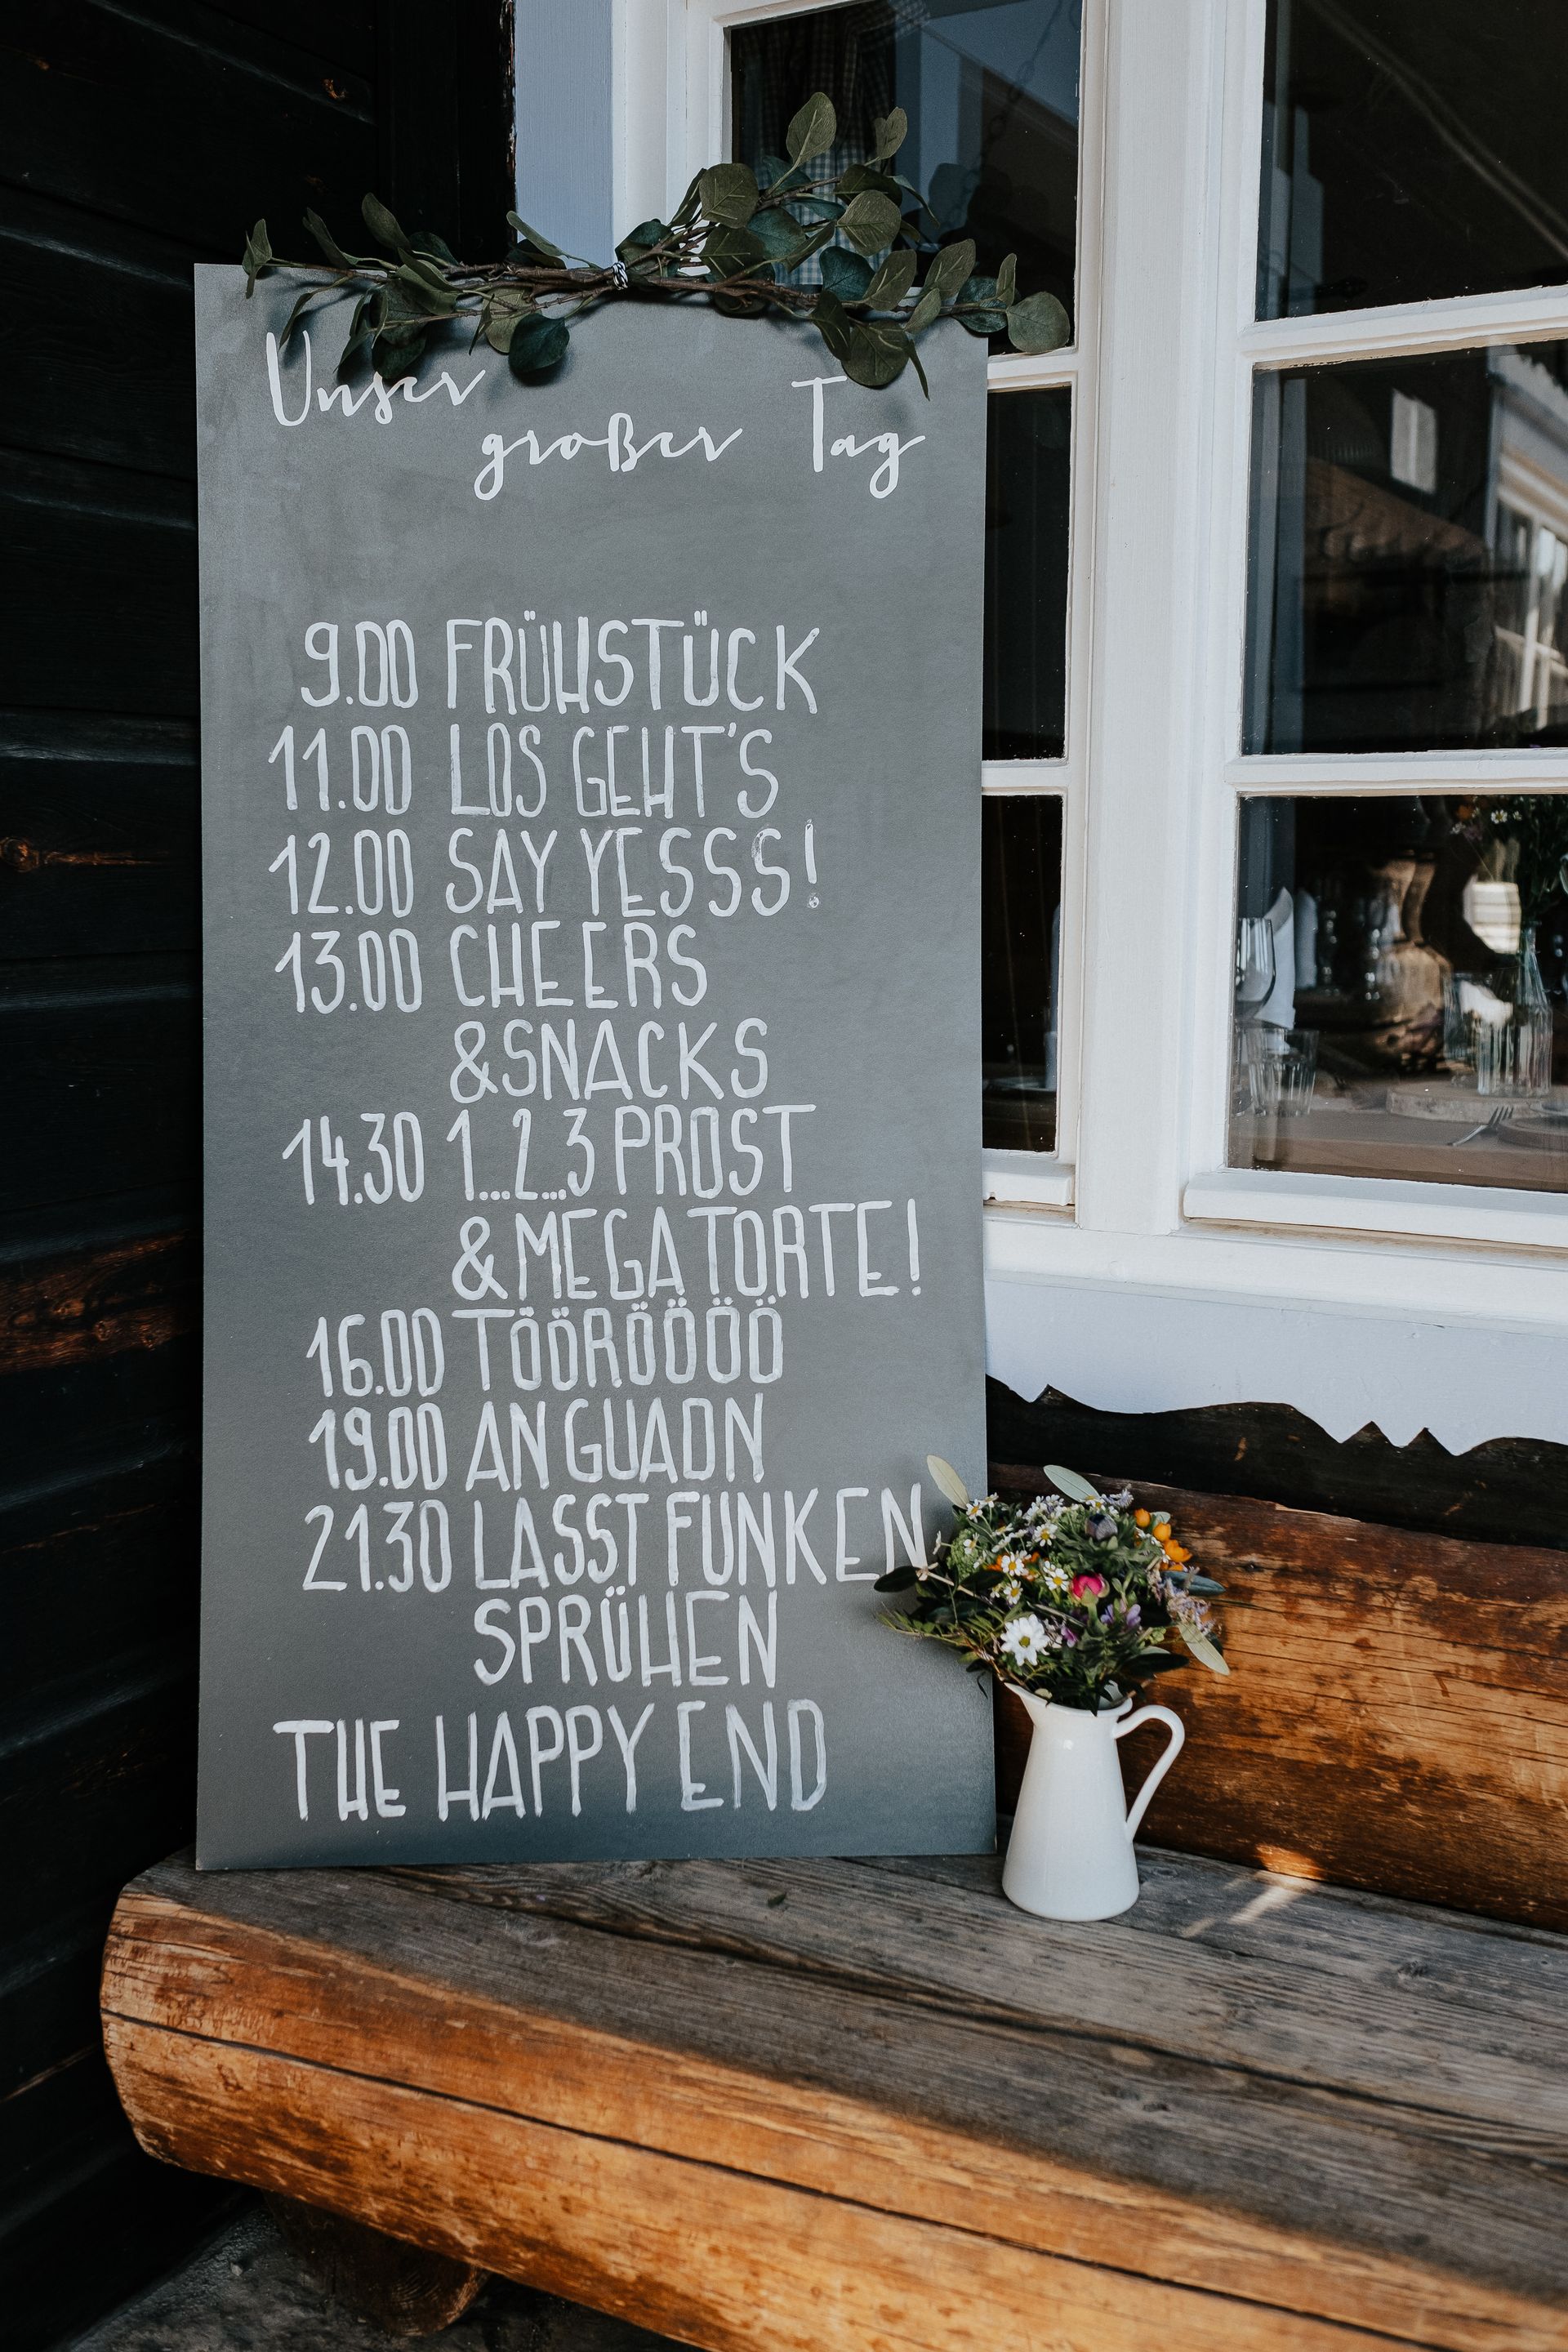 Unser
großer Tag
9.00 FRÜHSTÜCK
11.00 LOS GEHT'S
12.00 SAY YESSS!
13.00 CHEERS
&SNACKS
14.30 1...2...3 PROST
& MEGA TORTE!
16.00 TÖÖRÖÖÖÖ
19.00 AN GUADN
21.30 LASST FUNKEN
SPRÜHEN
THE HAPPY END